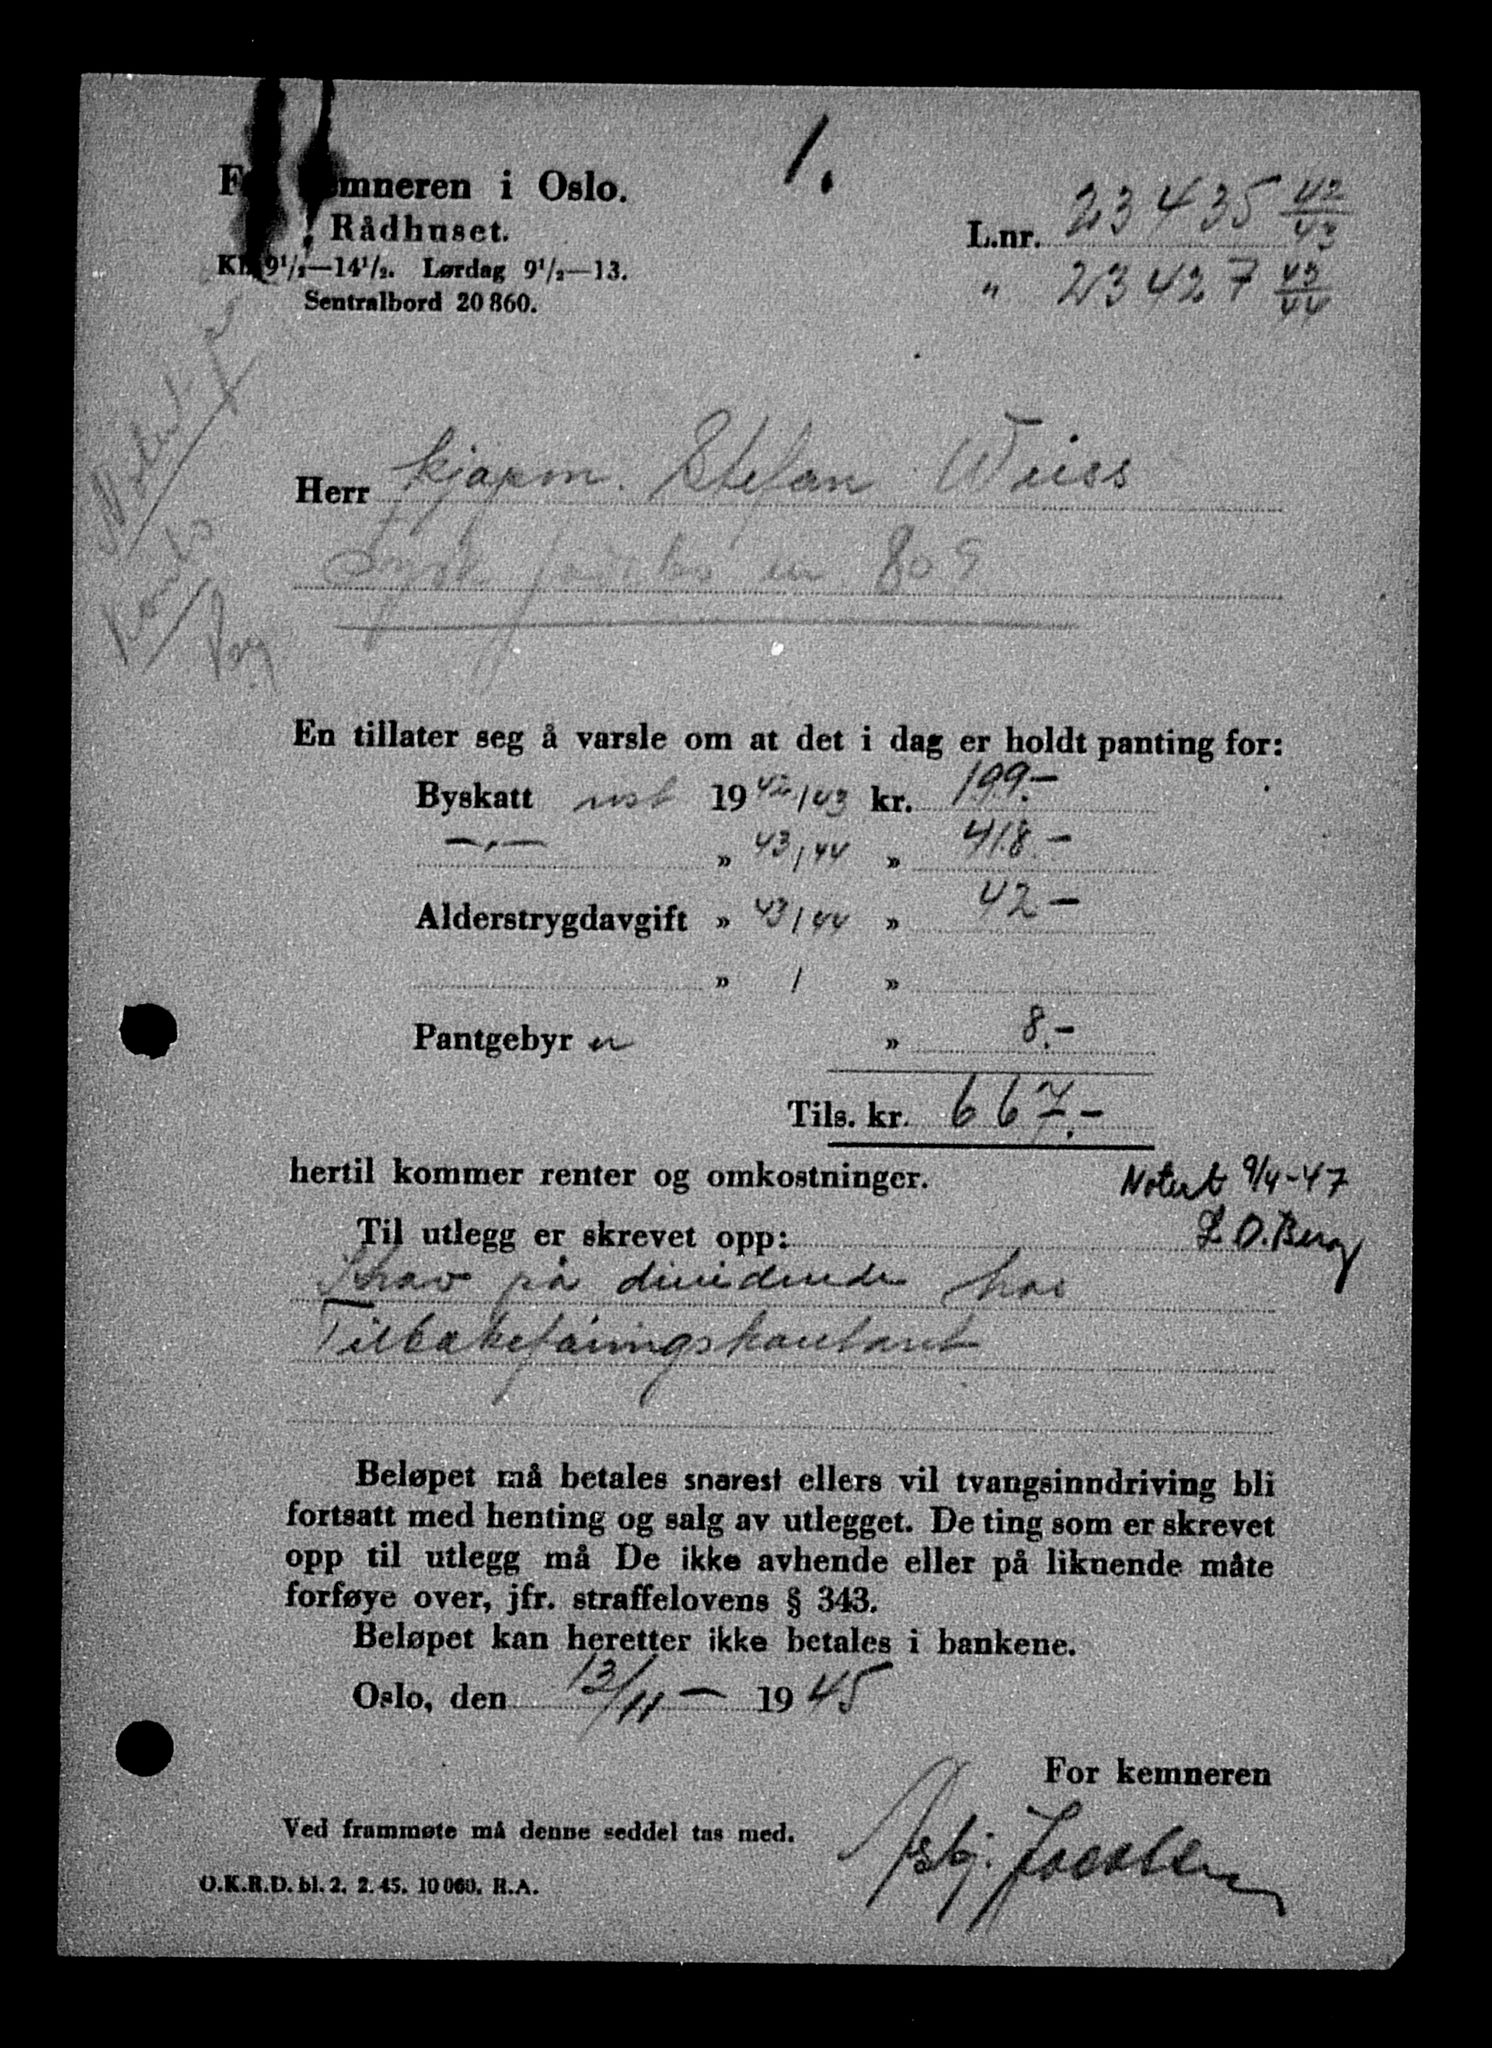 1.
Kemneren i Oslo.
Rådhuset.
Kl. 9½—14½. Lørdag 9½—13.
Sentralbord 20 860.
L.nr. 23435 42/43
" 23427 43/44
Notert
Herr kjøpm. Stefan Weiss
Tysk jødebo nr 809
En tillater seg å varsle om at det i dag er holdt panting for:
Byskatt rest 1942/43 kr. 199.-
—„— » 43/44 » 418.-
Alderstrygdavgift » 43/44 » 42-
» / »
Pantgebyr er » 8.-
Tils. kr. 667.-
hertil kommer renter og omkostninger.
Notert 9/4-47
L O. Berg
Til utlegg er skrevet opp:
Krav på dividende hos
Tilbakeføringskontoret
Beløpet må betales snarest ellers vil tvangsinndriving bli
fortsatt med henting og salg av utlegget. De ting som er skrevet
opp til utlegg må De ikke avhende eller på liknende måte
forføye over, jfr. straffelovens § 343.
Beløpet kan heretter ikke betales i bankene.
Oslo, den 13/11 - 1945
For kemneren
Asbj. Jacobsen
Ved frammøte må denne seddel tas med.
O.K.R.D. bl. 2. 2. 45. 10 000. R.A.